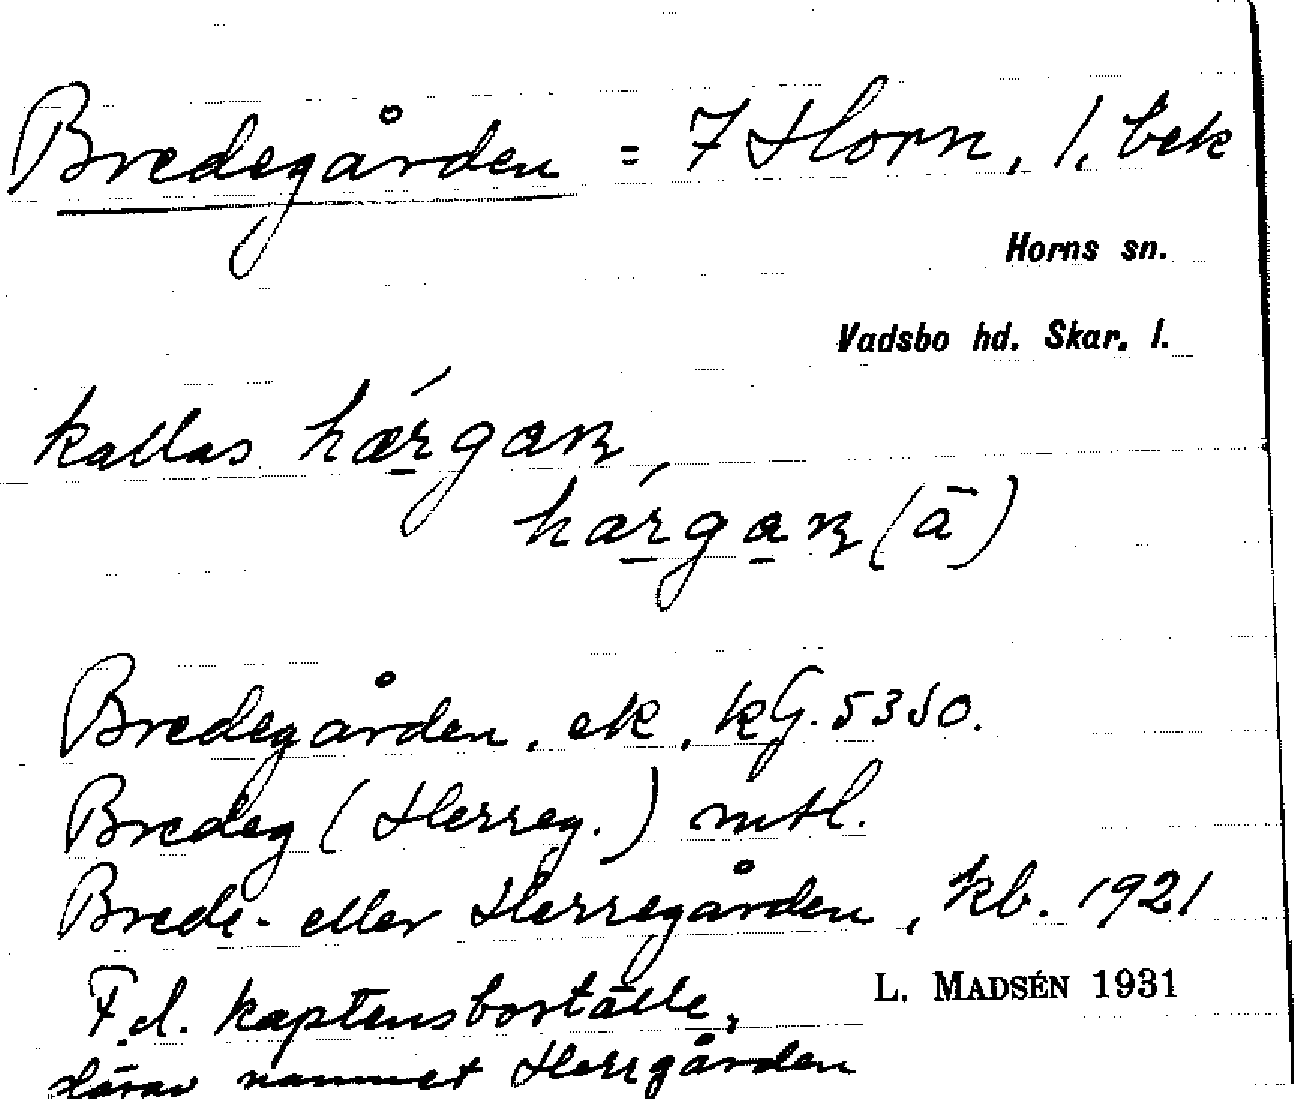 Bredegården = 7 Horn, 1. bek
Horns sn.
Vadsbo hd. Skar. l.
kallas hærgaɳ
hærgaɳ (ā)
Bredegården, ek, kG. 5350.
Bredeg (Herreg.) mtl.
Brede- eller Herregården, kb. 1921
F.d. kaptensboställe,
L. MADSÉN 1931
därav namnet Herrgården